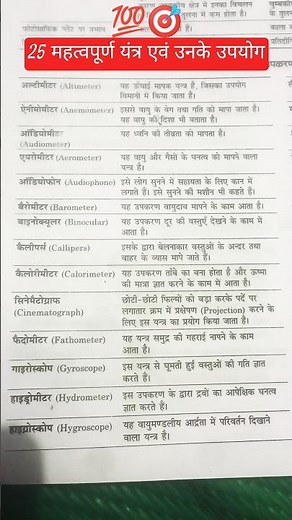 💯🎯
25 महत्वपूर्ण यंत्र एवं उनके उपयोग
अल्टीमीटर (Altimeter) यह ऊँचाई मापक यन्त्र है, जिसका उपयोग
विमानों में किया जाता है।
ऐनीमोमीटर (Anemometer) इससे वायु के वेग तथा गति को मापा जाता है।
यह वायु की दिशा भी बताता है।
ऑडियोमीटर यह ध्वनि की तीव्रता को मापता है।
(Audiometer)
एयरोमीटर (Aerometer) यह वायु और गैसों के घनत्व को मापने वाला
यन्त्र है।
ऑडियोफोन (Audiophone) इसे लोग सुनने में सहायता के लिए कान में
लगाते हैं। इसे सुनने की मशीन भी कहते हैं।
बैरोमीटर (Barometer) यह उपकरण वायुदाब मापने के काम आता है।
बाइनोक्यूलर (Binocular) यह उपकरण दूर की वस्तुएँ देखने के काम में
आता है।
कैलीपर्स (Callipers) इसके द्वारा बेलनाकार वस्तुओं के अन्दर तथा
बाहर के व्यास मापे जाते हैं।
कैलोरीमीटर (Calorimeter) यह उपकरण ताँबे का बना होता है और ऊष्मा
की मात्रा ज्ञात करने के काम में आता है।
सिनेमैटोग्राफ छोटी-छोटी फिल्मों को बड़ा करके पर्दे पर
(Cinematograph) लगातार क्रम में प्रक्षेपण (Projection) करने के
लिए इस यन्त्र का प्रयोग किया जाता है।
फैदोमीटर (Fathometer) यह यन्त्र समुद्र की गहराई नापने के काम
आता है।
गाइरोस्कोप (Gyroscope) इस यन्त्र से घूमती हुई वस्तुओं की गति ज्ञात
करते हैं।
हाइड्रोमीटर (Hydrometer) इस उपकरण के द्वारा द्रवों का आपेक्षिक घनत्व
ज्ञात करते हैं।
हाइग्रोस्कोप (Hygroscope) यह वायुमण्डलीय आर्द्रता में परिवर्तन दिखाने
वाला यन्त्र है।